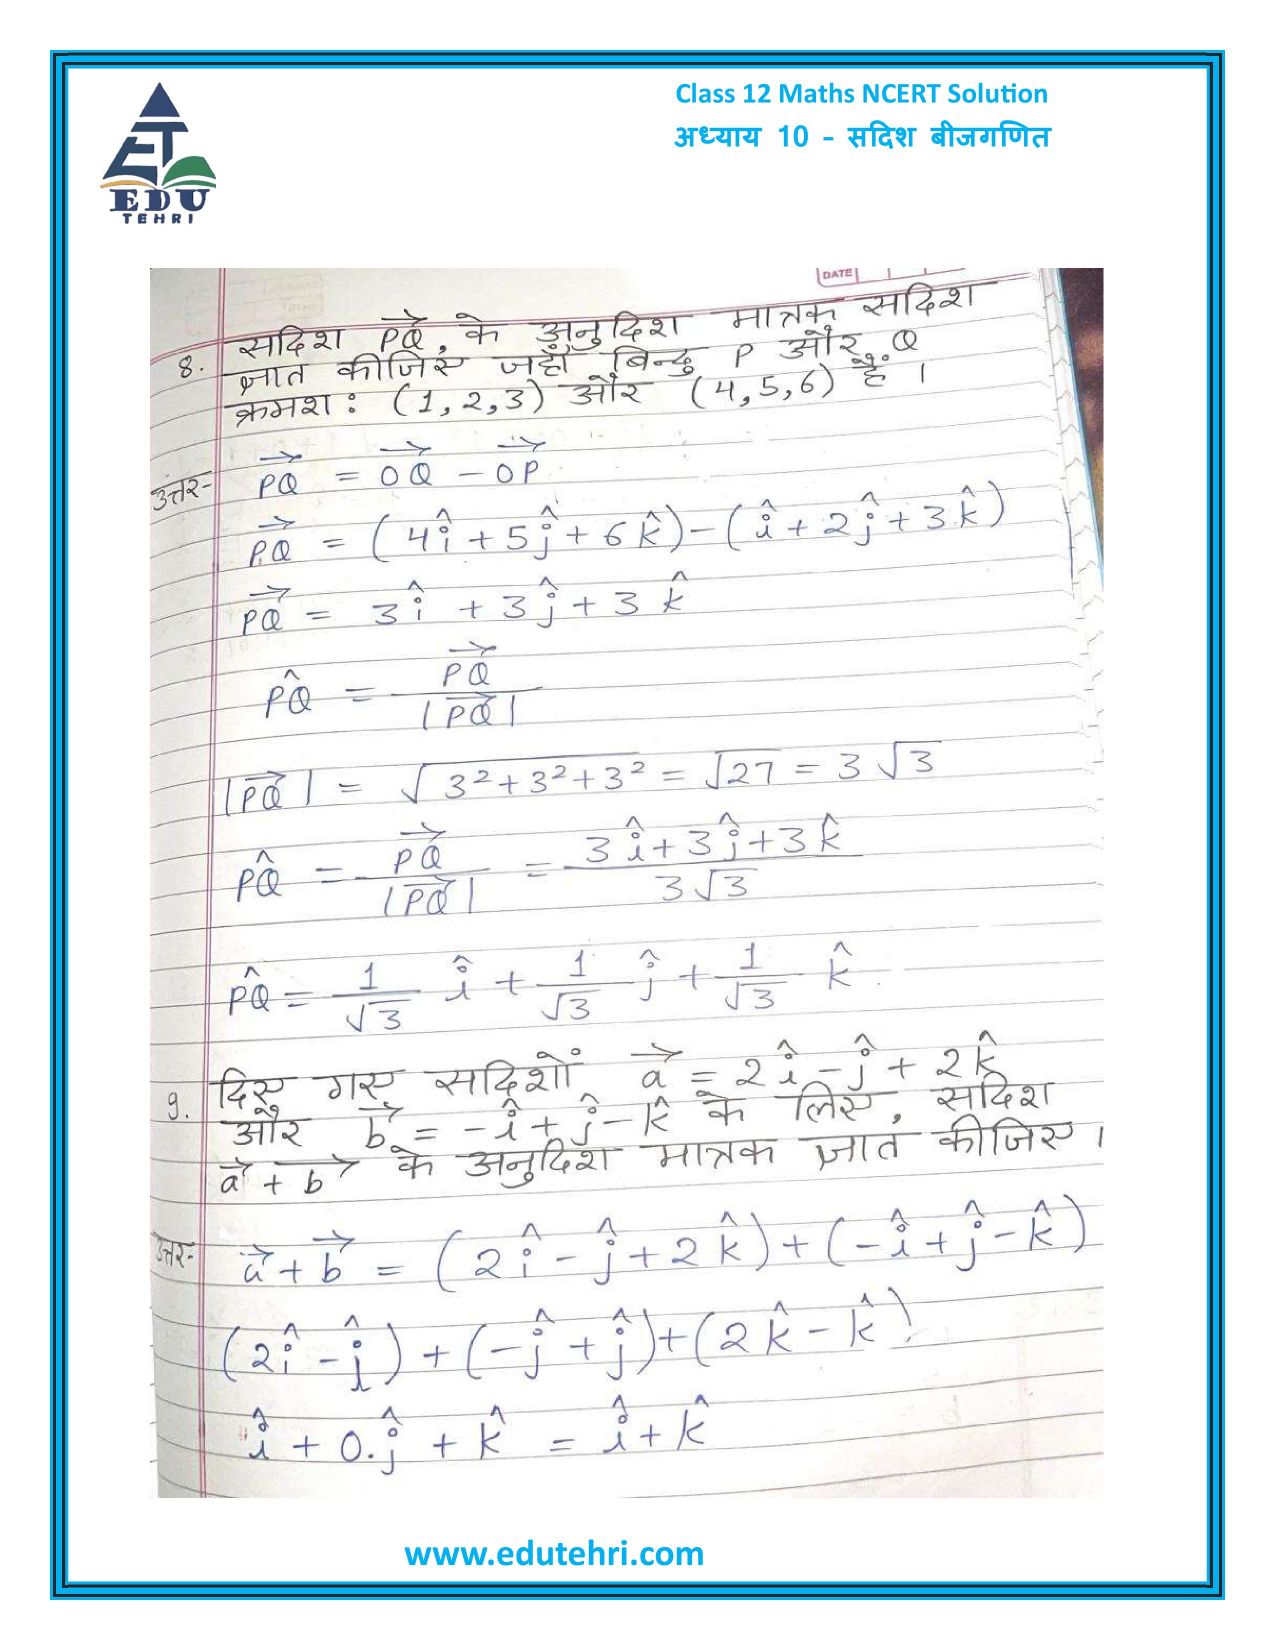 Class 12 Maths NCERT Solution
अध्याय 10 - सदिश बीजगणित
EDU
TEHRI
DATE
8. सदिश PQ⃗, के अनुदिश मात्रक सदिश
ज्ञात कीजिए जहाँ बिन्दु P और Q
क्रमश: (1,2,3) और (4,5,6) हैं ।
उत्तर- PQ⃗ = OQ⃗ - OP⃗
PQ⃗ = (4î + 5ĵ + 6k̂) - (î + 2ĵ + 3k̂)
PQ⃗ = 3î + 3ĵ + 3k̂
PQ̂ = PQ⃗ / |PQ⃗|
|PQ⃗| = √(3²+3²+3²) = √27 = 3√3
PQ̂ = PQ⃗ / |PQ⃗| = (3î + 3ĵ + 3k̂) / 3√3
PQ̂ = 1/√3 î + 1/√3 ĵ + 1/√3 k̂
9. दिए गए सदिशों a⃗ = 2î - ĵ + 2k̂
और b⃗ = -î + ĵ - k̂ के लिए, सदिश
a⃗ + b⃗ के अनुदिश मात्रक ज्ञात कीजिए ।
उत्तर- a⃗ + b⃗ = (2î - ĵ + 2k̂) + (-î + ĵ - k̂)
(2î - î) + (-ĵ + ĵ) + (2k̂ - k̂)
î + 0.ĵ + k̂ = î + k̂
www.edutehri.com